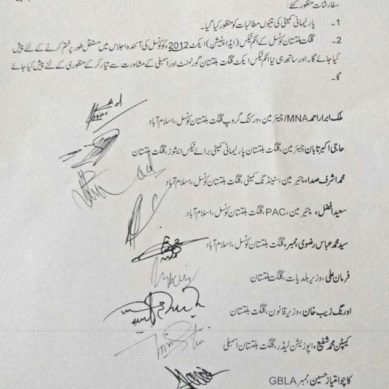 سفارشات منظور کئے
1- پارلیمانی کمیٹی کی تینوں مطالبات کو منظور کیا گیا۔
2- گلگت بلتستان کونسل کے انکم ٹیکس (ایڈاپٹیشن) ایکٹ 2012، کونسل کی آئندہ اجلاس میں مستقل طور پر ختم کرنے کے لئے پیش
کیا جائے گا۔ اور ساتھ ہی نیا انکم ٹیکس ایکٹ گلگت بلتستان گورنمنٹ اور اسمبلی کے مشاورت سے تیار کر کے منظوری کے لئے پیش کیا جائے
گا۔
ملک ابرار احمد MNA/چیئرمین، ورکنگ گروپ گلگت بلتستان کونسل، اسلام آباد
حاجی اکبر تابان چیئرمین، گلگت بلتستان پارلیمانی کمیٹی برائے ٹیکس ایشوز، گلگت بلتستان
محمد اشرف صدا، چیئرمین، سٹینڈنگ کمیٹی، گلگت بلتستان کونسل، اسلام آباد
سعید افضل، چیئرمین، PAC، گلگت بلتستان کونسل، اسلام آباد
سید محمد عباس رضوی، ممبر، گلگت بلتستان کونسل، اسلام آباد
فرمان علی، وزیر بلدیات، گلگت بلتستان
اورنگ زیب خان، وزیر قانون، گلگت بلتستان
کیپٹن محمد شفیع، اپوزیشن لیڈر، گلگت بلتستان اسمبلی
کاچو امتیاز حسین، ممبر GBLA